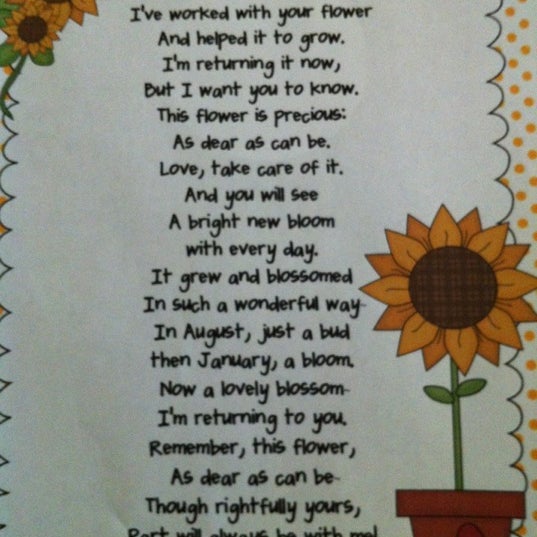 I've worked with your flower
And helped it to grow.
I'm returning it now,
But I want you to know.
This flower is precious:
As dear as can be.
Love, take care of it.
And you will see
A bright new bloom
with every day.
It grew and blossomed
In such a wonderful way-
In August, just a bud
then January, a bloom.
Now a lovely blossom-
I'm returning to you.
Remember, this flower,
As dear as can be-
Though rightfully yours,
Part will always be with me!